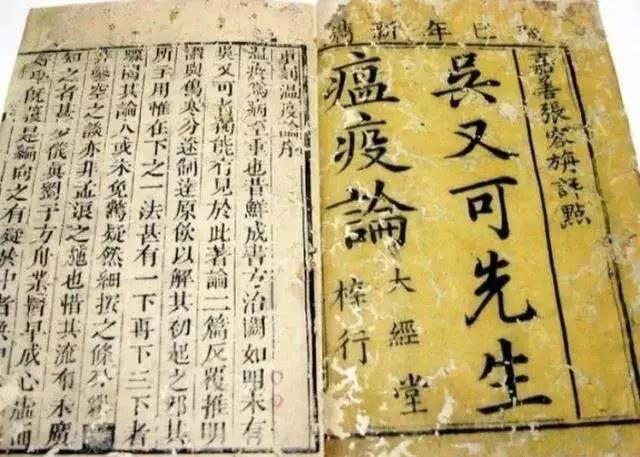 巳年新鐫
嘉善張容旂評點
吳又可先生
瘟疫論
大經堂
梓行
重刻温疫論序
温疫爲病至重也昔鮮成書方治闕如明末有
吳又可者獨能有見於此著論二篇反覆推明
謂與傷寒分途制達原飲以解其初起之邪其
所主用惟在下之一法甚有一下再下三下者
驟閱其論人或未免驚疑然細按之條分縷
鑿空之談亦非孟浪之施也惜其流布未廣
知之者甚少儀真劉子方舟業醫早成心虛而
是編向之有疑於中者無